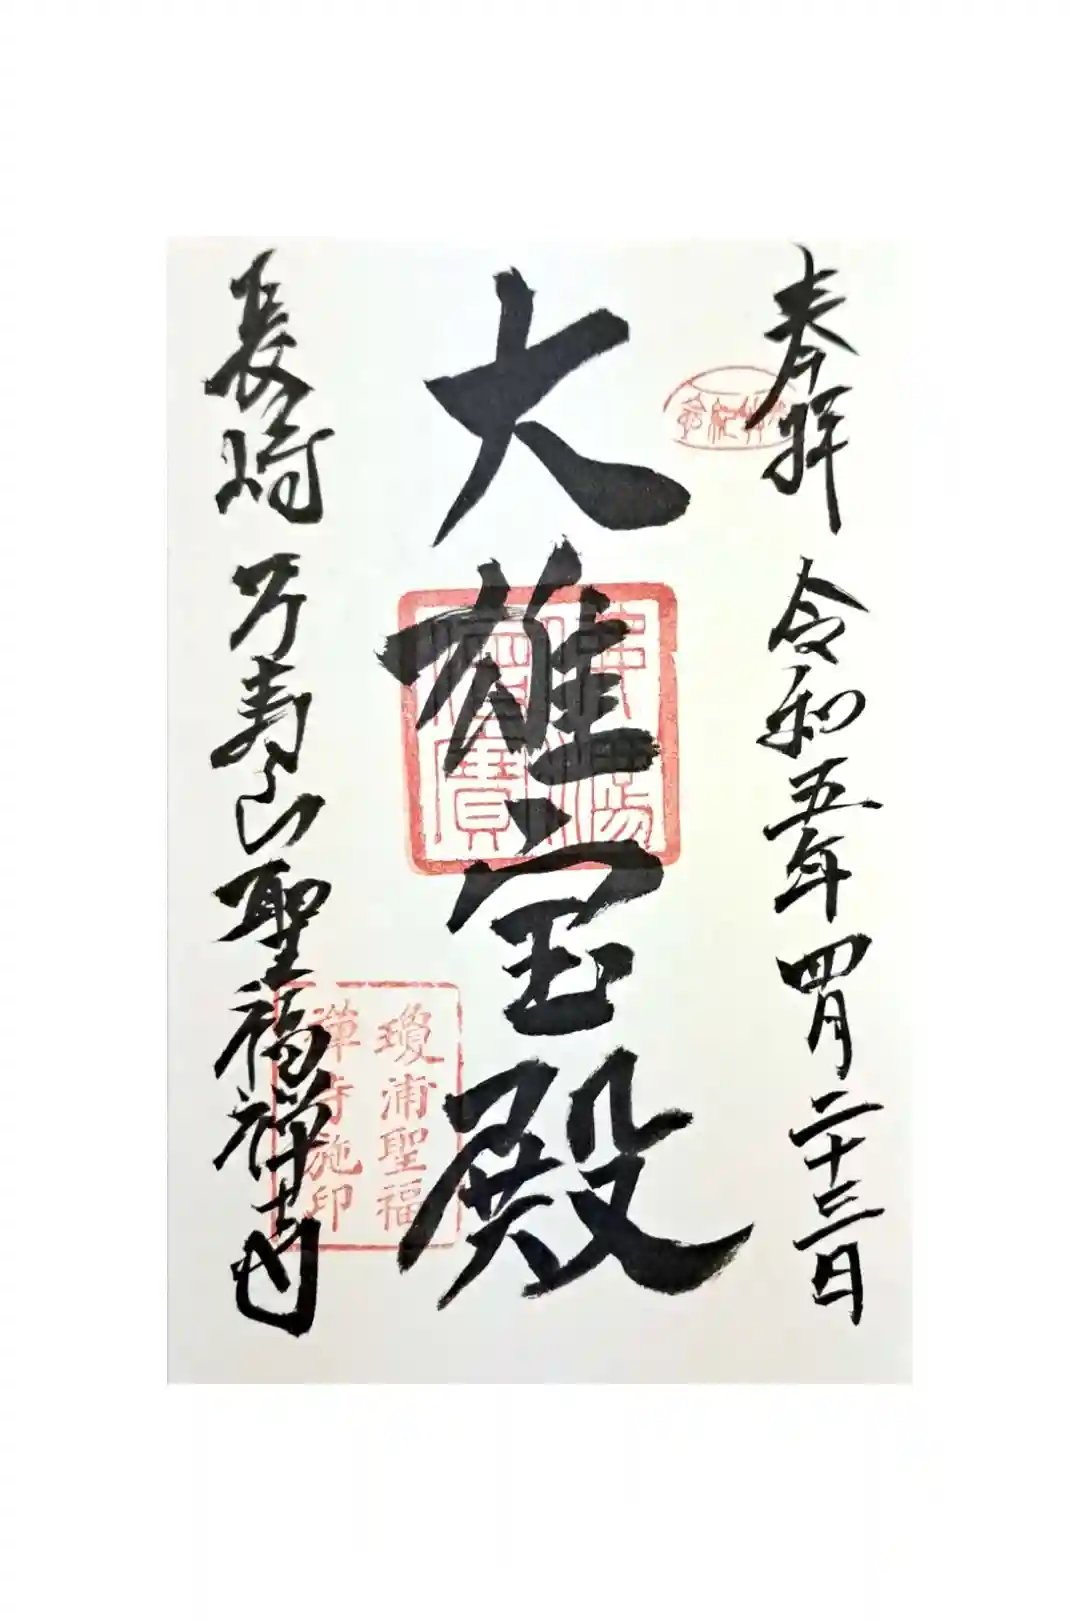 奉拝 令和五年四月二十三日
大雄宝殿
長崎 万寿山聖福禅寺
佛法僧寶
瓊浦聖福
禅寺施印